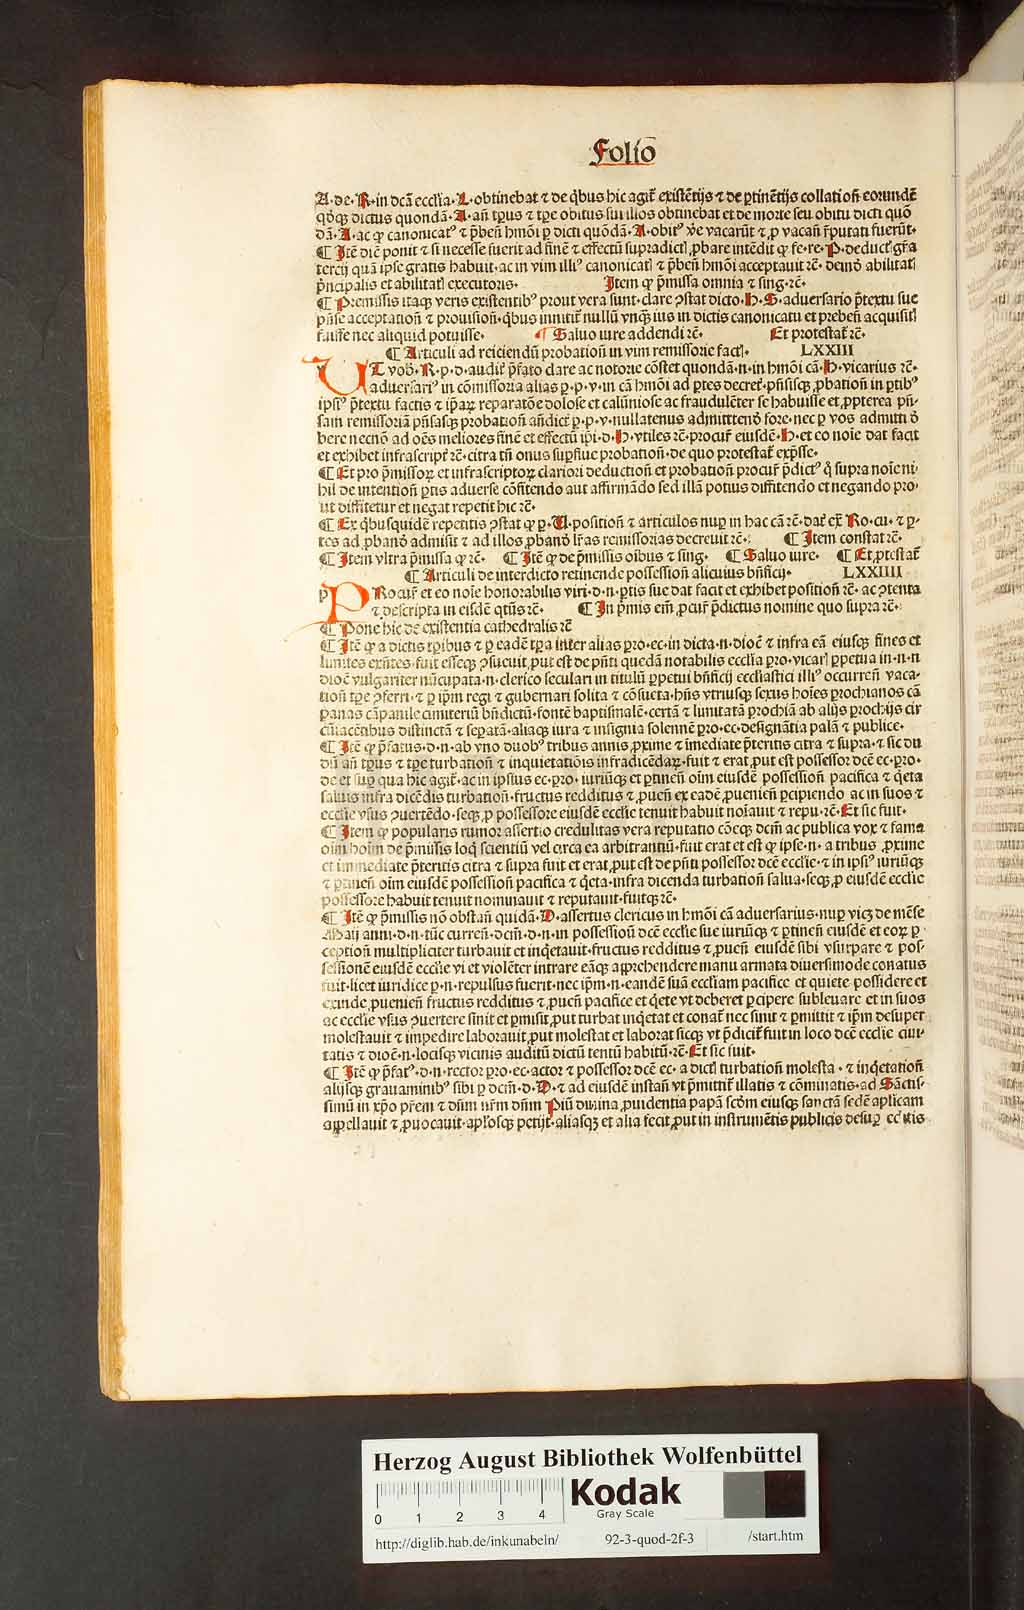 Foliō
A·de·R·in dcā ecclīa·L·obtinebat ⁊ de q̇bus hic agit̄ existētijs ⁊ de ꝑtinētijs collation̄ eorundē
qōq̃ dictus quondā·A·an̄ tꝑus ⁊ tꝑe obitus sui illos obtinebat et de morte seu obitu dicti quō
dā·A·ac ꝙ canonicatꝰ ⁊ p̄ben̄ hmōi ꝑ dicti quōdā·A·obitꝰ v̄e vacarūt ⁊ ꝓ vacan̄ r̄putati fuerūt·
¶ Itē dic̄ ponit ⁊ si necesse fuerit ad finē ⁊ effectū supradictꝭ ꝓbare intēdit ꝙ fe·re·P·deductꝭ gr̄a
tercij quā ipse gratis habuit·ac in vim illiꝰ canonicatꝭ ⁊ p̄ben̄ hmōi acceptauit rē· deinō abilitatꝭ
p̄ncipalis et abilitatꝭ executoris· Item ꝙ p̄missa omnia ⁊ sing·rē·
¶ Premissis itaq̃ veris existentibꝰ prout vera sunt·clare ꝯstat dicto·H·S·aduersario p̄textu sue
pn̄se acceptation̄ ⁊ prouision̄·q̇bus innitit̄ nullū vnq̃ ius in dictis canonicatu et preben̄ acquisitꝭ
fuisse nec aliquid potuisse· ¶ Saluo iure addendi rē· Et protestat̄ rē·
¶ Articuli ad reiciendū probation̄ in vim remissorie factꝭ· LXXIII
UT vob̄·R·p·d·audit̄ p̄fato clare ac notorie cōstet quondā·n·in hmōi cā·H·vicarius rē·
aduersariꝰ in cōmissoria alias ꝑ·p·v·in cā hmōi ad ꝑtes decret̄·pn̄sisq̃ ꝓbation̄ in ꝑtibꝰ
ipsiꝰ p̄textu factis et ip̄aꝝ reparatōe dolose et calūniose ac fraudulēter se habuisse et ꝓpterea pn̄-
sam remissoriā pn̄sasq̃ probation̄ an̄dict̄ ꝑ·p·v·nullatenus admitttenō fore·nec ꝑ vos admitti ō
bere necnō ad oēs meliores finē et effectū ip̄i·d·H·vtiles rē·procur̄ eiusdē·H·et eo noīe dat facit
et exhibet infrascript̄ rē·citra tn̄ onus suꝑflue probation̄·de quo protestat̄ exp̄sse·
¶ Et pro p̄missoꝝ et infrascriptoꝝ clariori deduction̄ et probation̄ procur̄ p̄dictꝰ q̊ supra noīe ni-
hil de intention̄ ꝑtis aduerse cōfitendo aut affirmādo sed illā potius diffitendo et negando pro-
ut diffitetur et negat repetit hic rē·
¶ Ex q̇busquidē repetitis ꝯstat ꝙ ꝑ·U·position̄ ⁊ articulos nuꝑ in hac cā rē·dat̄ ex̄ Ro·cu·⁊ ꝑ-
tes ad ꝓbanō admisit ⁊ ad illos ꝓbanō lr̄as remissorias decreuit rē·: ¶ Item constat rē·
¶ Item vltra p̄missa ꝙ rē· ¶ Itē ꝙ de p̄missis oībus ⁊ sing· ¶ Saluo iure· ¶ Et ꝓtestat̄
¶ Articuli de interdicto retinende possession̄ alicuius bn̄ficij· LXXIIII
PRocur̄ et eo noīe honorabilis viri·d·n·ꝑtis sue dat facit et exhibet position̄ rē· ac ꝯtenta
⁊ descripta in eisdē qtūs rē· ¶ In p̄mis em̄ ꝓcur̄ p̄dictus nomine quo supra rē·:
¶ Pone hic de existentia cathedralis rē
¶ Itē ꝙ a dictis tꝑibus ⁊ ꝑ eadē tꝑa inter alias pro·ec·in dicta·n·dioc̄ ⁊ infra eā eiusq̃ fines et
limites exn̄tes·fuit esseq̃ ꝯsueuit ꝓut est de pn̄ti quedā notabilis ecclīa pro·vicarꝭ ꝑpetua in·n·n
dioc̄ vulgariter nūcupata·n·clerico seculari in titulū ꝑpetui bn̄ficij eccl̄iastici illiꝰ occurren̄ vaca-
tion̄ tꝑe ꝯferri·⁊ ꝑ ip̄m regi ⁊ gubernari solita ⁊ cōsueta·hn̄s vtriusq̃ sexus hoīes ꝓrochianos cā
panas cāpanile cimiteriū bn̄dictū·fontē baptismalē·certā ⁊ limitatā ꝓrochiā ab alijs ꝓrochijs cir
cūiacentibus distinctā ⁊ seꝑatā·aliaq̃ iura ⁊ insignia solennē pro·ec·designātia palā ⁊ publice·
¶ Itē ꝙ p̄fatus·d·n·ab vno duobꝰ tribus annis ꝓxime ⁊ īmediate p̄teritis citra ⁊ supra·⁊ sic du
dū an̄ tꝑus ⁊ tꝑe turbation̄ ⁊ inquietatiōis infradicēdaꝝ·fuit ⁊ erat ꝓut est possessor dcē ec·pro·
de et suꝑ qua hic agit̄·ac in ipsius ec·pro· iuriūq̃ et ꝑtinen̄ oīm eiusdē possession̄ pacifica ⁊ q̇eta
saluis infra dicēdis turbation̄·fructus redditus ⁊ ꝓuen̄ ex eadē ꝓuenien̄ ꝑcipiendo ac in suos ⁊
eccl̄ie vsus ꝯuertēdo·seq̃ ꝓ possessore eiusdē eccl̄ie tenuit habuit noīauit ⁊ repu·rē·Et sic fuit·
¶ Item ꝙ popularis rumor assertio credulitas vera reputatio cōcēq̃ dcm̄ ac publica vox ⁊ fama
oīm hoīm de p̄missis loq̇ scientiū vel circa ea arbitrantiū·fuit erat et est ꝙ ipse·n·a tribus ꝓxime
et immediate p̄teritis citra ⁊ supra fuit et erat ꝓut est de pn̄ti possessor dcē eccl̄ie·⁊ in ipsiꝰ iuriūq̃
⁊ ꝑtinen̄ oīm eiusdē possession̄ pacifica ⁊ q̇eta·infra dicenda turbation̄ salua·seq̃ ꝓ eiusdē eccl̄ie
possessore habuit tenuit nominauit ⁊ reputauit·fuitq̃ rē·
¶ Itē ꝙ p̄missis nō obstan̄ quidā·D·assertus clericus in hmōi cā aduersarius·nuꝑ vicꝫ de mēse
Maij anni·d·n·tūc curren̄·dcm̄·d·n·in possession̄ dcē eccl̄ie sue iuriūq̃ ⁊ ꝑtinen̄ eiusdē et eoꝝ ꝑ-
ception̄ multipliciter turbauit et inq̇etauit·fructus redditus ⁊ ꝓuen̄ eiusdē sibi vsurpare ⁊ pos-
sessionē eiusdē eccl̄ie vi et violēter intrare eāq̃ apprehendere manu armata diuersimode conatus
fuit·licet iuridice ꝑ·n·repulsus fuerit·nec ip̄m·n·eandē suā eccl̄iam pacifice et quiete possidere et
exinde ꝓuenien̄ fructus redditus ⁊ ꝓuen̄ pacifice et q̇ete vt deberet ꝑcipere subleuare et in suos
ac eccl̄ie vsus ꝯuertere sinit et ꝑmisit ꝓut turbat inq̇etat et conat̄ nec sinit ⁊ ꝑmittit ⁊ ip̄m desuper
molestauit ⁊ impedire laborauit ꝓut molestat et laborat sicq̃ vt p̄dicit̄ fuit in loco dcē eccl̄ie ciui-
tatis ⁊ dioc̄·n·locisq̃ vicinis auditū dictū tentū habitū·rē·Et sic fuit·
¶ Itē ꝙ p̄fatꝰ·d·n·rector pro·ec·actor ⁊ possessor dcē ec· a dictꝭ turbation̄ molesta·⁊ inq̇etation̄
alijsq̃ grauaminibꝰ sibi ꝑ dcm̄·d·D·⁊ ad eiusdē instan̄ vt p̄mittit̄ illatis ⁊ cōminatis·ad Sāctis-
simū in xp̄o pr̄em ⁊ dn̄m nr̄m dn̄m Piū diuina ꝓuidentia papā scd̄m eiusq̃ sanctā sedē aplicam
appellauit ⁊ ꝓuocauit·aplōsq̃ petijt·aliasqꝫ et alia fecit ꝓut in instrumētis publicis desuꝑ
Herzog August Bibliothek Wolfenbüttel
0 1 2 3 4
Kodak
Gray Scale
http://diglib.hab.de/inkunabeln/ 92-3-quod-2f-3 /start.htm